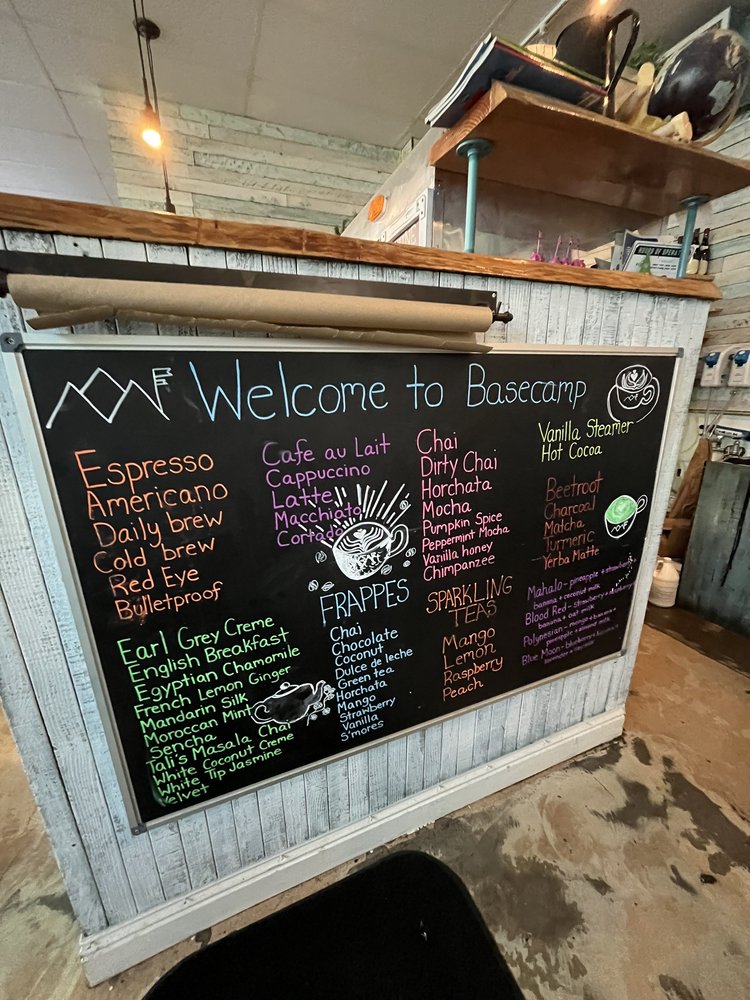 Welcome to Basecamp
Espresso
Americano
Daily brew
Cold brew
Red Eye
Bulletproof
Earl Grey Creme
English Breakfast
Egyptian Chamomile
French Lemon Ginger
Mandarin Silk
Moroccan Mint
Sencha
Tali's Masala Chai
White Coconut Creme
White Tip Jasmine
Velvet
Cafe au Lait
Cappuccino
Latte
Macchiato
Cortado
FRAPPES
Chai
Chocolate
Coconut
Dulce de leche
Green tea
Horchata
Mango
Strawberry
Vanilla
S'mores
Chai
Dirty Chai
Horchata
Mocha
Pumpkin Spice
Peppermint Mocha
Vanilla honey
Chimpanzee
SPARKLING
TEAS
Mango
Lemon
Raspberry
Peach
Vanilla Steamer
Hot Cocoa
Beetroot
Charcoal
Matcha
Turmeric
Yerba Matte
Mahalo - pineapple + strawberry
banana + coconut milk
Blood Red - strawberry +
banana + oat milk
Polynesian - mango + banana +
pineapple + almond milk
Blue Moon - blueberry +
lavender +
HOURS OF